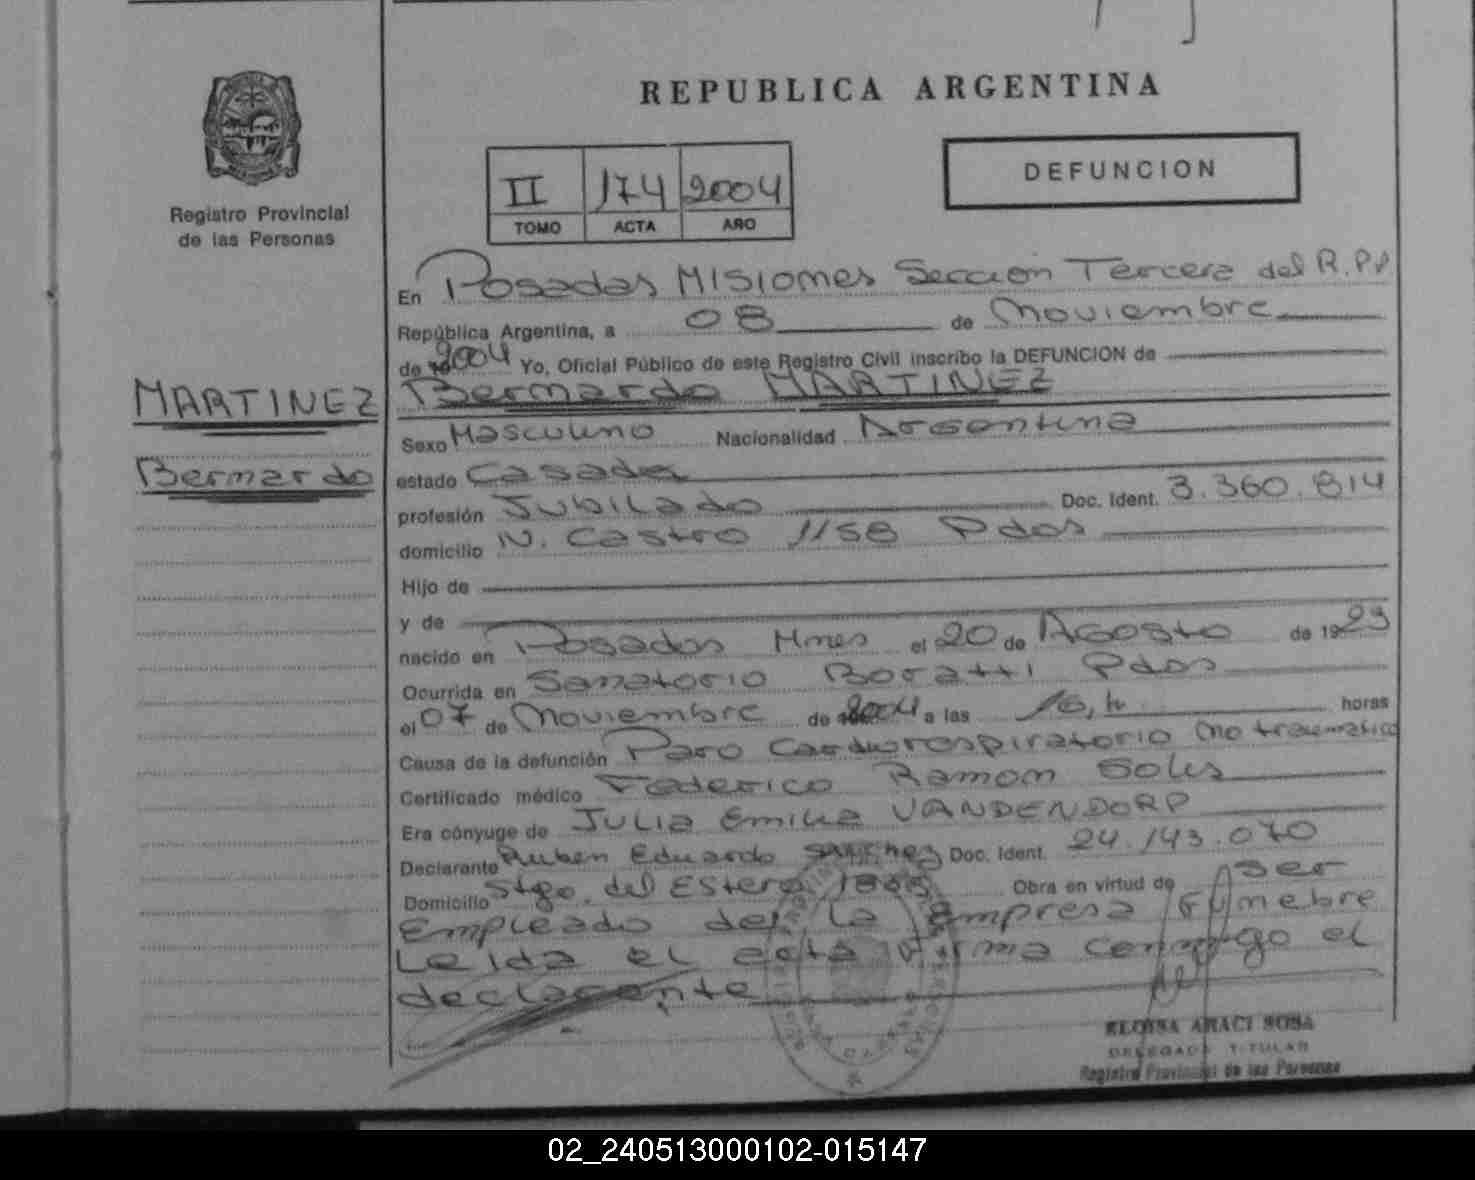 REPUBLICA ARGENTINA
Registro Provincial
de las Personas
II 174 2004
TOMO ACTA AÑO
DEFUNCION
En Posadas Misiones Sección Tercera del R.P.P
República Argentina, a 08 de Noviembre
de 2004 Yo, Oficial Público de este Registro Civil inscribo la DEFUNCION de
MARTINEZ
Bernardo
Bernardo MARTINEZ
Sexo Masculino Nacionalidad Argentina
estado Casado
profesión Jubilado Doc. Ident. 3.360.814
domicilio N. Castro 1158 Pdas
Hijo de
y de
nacido en Posadas Mnes el 20 de Agosto de 1923
Ocurrida en Sanatorio Boratti Pdas
el 07 de Noviembre de 2004 a las 16,h horas
Causa de la defunción Paro Cardiorespiratorio no traumatico
Certificado médico Federico Ramon Solis
Era cónyuge de JULIA Emilia VANDENDORP
Declarante Ruben Eduardo Doc. Ident. 24.143.070
Domicilio Stgo. del Estero Obra en virtud de ser
Empleado de la Empresa Funebre
Leida el acta firma conmigo el
declarante
ELOISA ARACI SOSA
DELEGADA TITULAR
Registro Provincial de las Personas
02_240513000102-015147